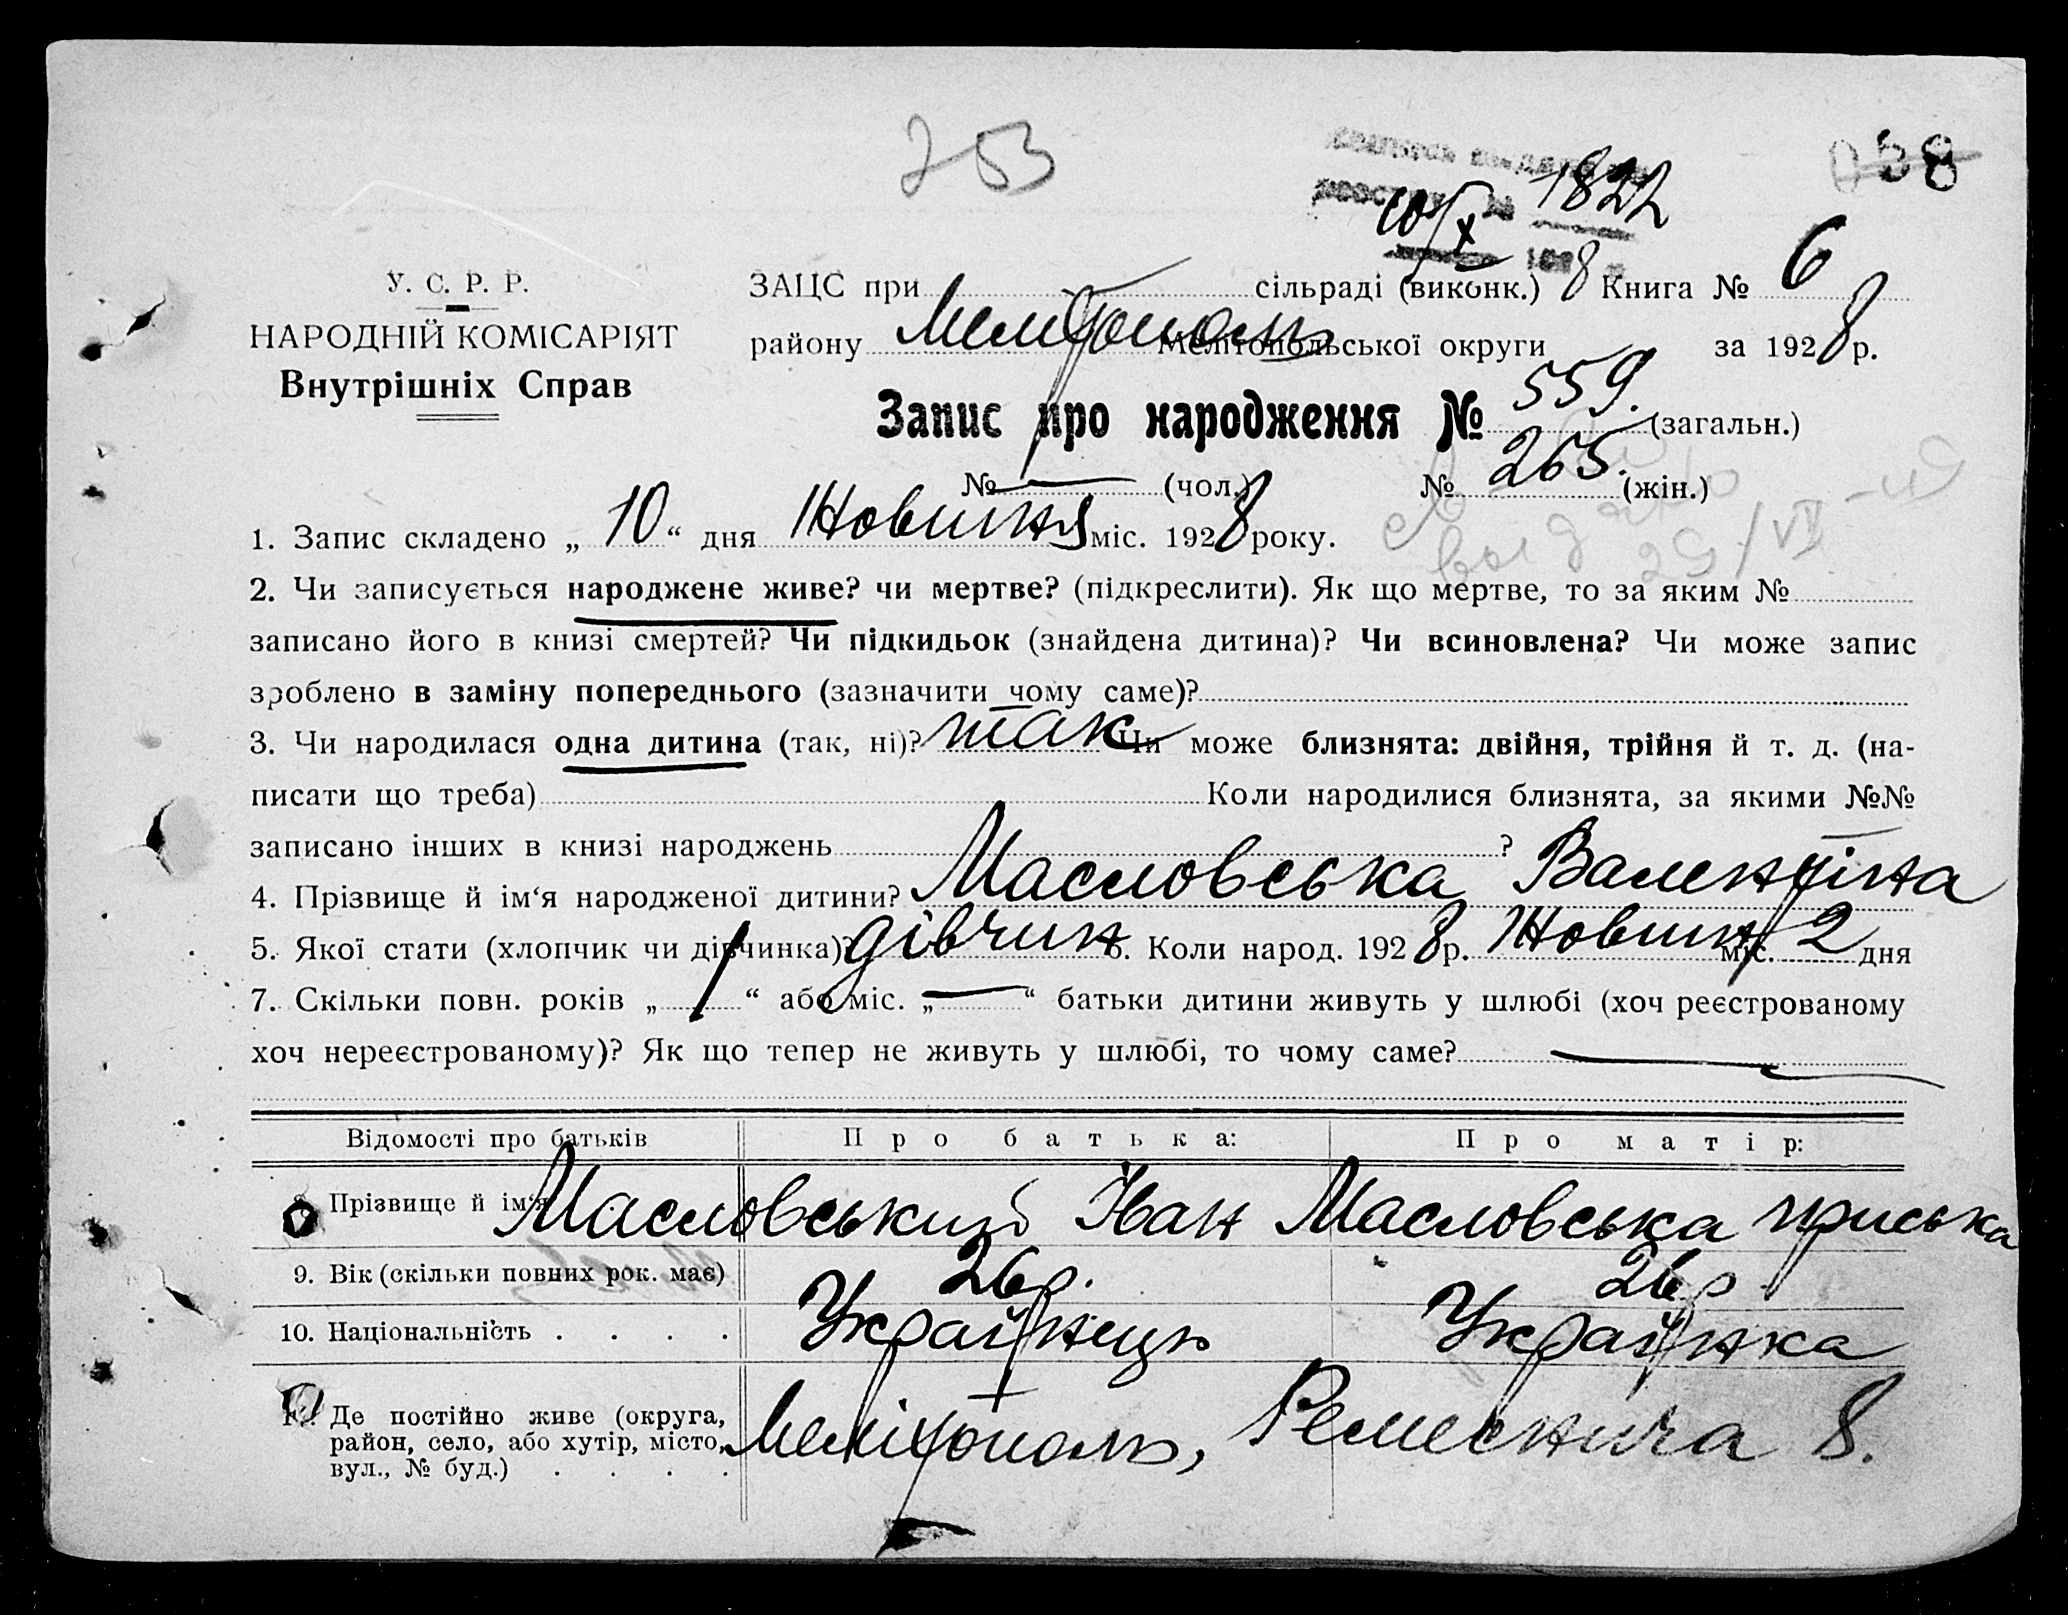 253
058
1822
10/X
1928
У. С. Р. Р.
НАРОДНІЙ КОМІСАРІЯТ
Внутрішніх Справ
ЗАЦС при сільраді (виконк.) Книга № 6
району Мелітополь Мелітопольської округи за 1928 р.
Запис про народження № 559. (загальн.)
№ — (чол.) № 265. (жін.)
1. Запис складено „ 10 “ дня Жовтня міс. 1928 року.
2. Чи записується народжене живе? чи мертве? (підкреслити). Як що мертве, то за яким №
записано його в книзі смертей? Чи підкидьок (знайдена дитина)? Чи всиновлена? Чи може запис
зроблено в заміну попереднього (зазначити чому саме)?
3. Чи народилася одна дитина (так, ні)? так Чи може близнята: двійня, трійня й т. д. (на-
писати що треба) Коли народилися близнята, за якими №№
записано інших в книзі народжень ?
4. Прізвище й ім‘я народженої дитини? Масловська Валентіна
5. Якої стати (хлопчик чи дівчинка)? дівчин 6. Коли народ. 1928 р. Жовтн міс. 2 дня
7. Скільки повн. років „ 1 “ або міс. „ — “ батьки дитини живуть у шлюбі (хоч реєстрованому
хоч нереєстрованому)? Як що тепер не живуть у шлюбі, то чому саме? —
Відомості про батьків Про батька: Про матір:
8. Прізвище й ім‘я Масловський Іван Масловська Приська
9. Вік (скільки повних рок. має) 26 р. 26 р
10. Національність . . . . Українець Українка
11. Де постійно живе (округа,
район, село, або хутір, місто, Мелітополь, Ремеснича 8.
вул., № буд.) . . . .